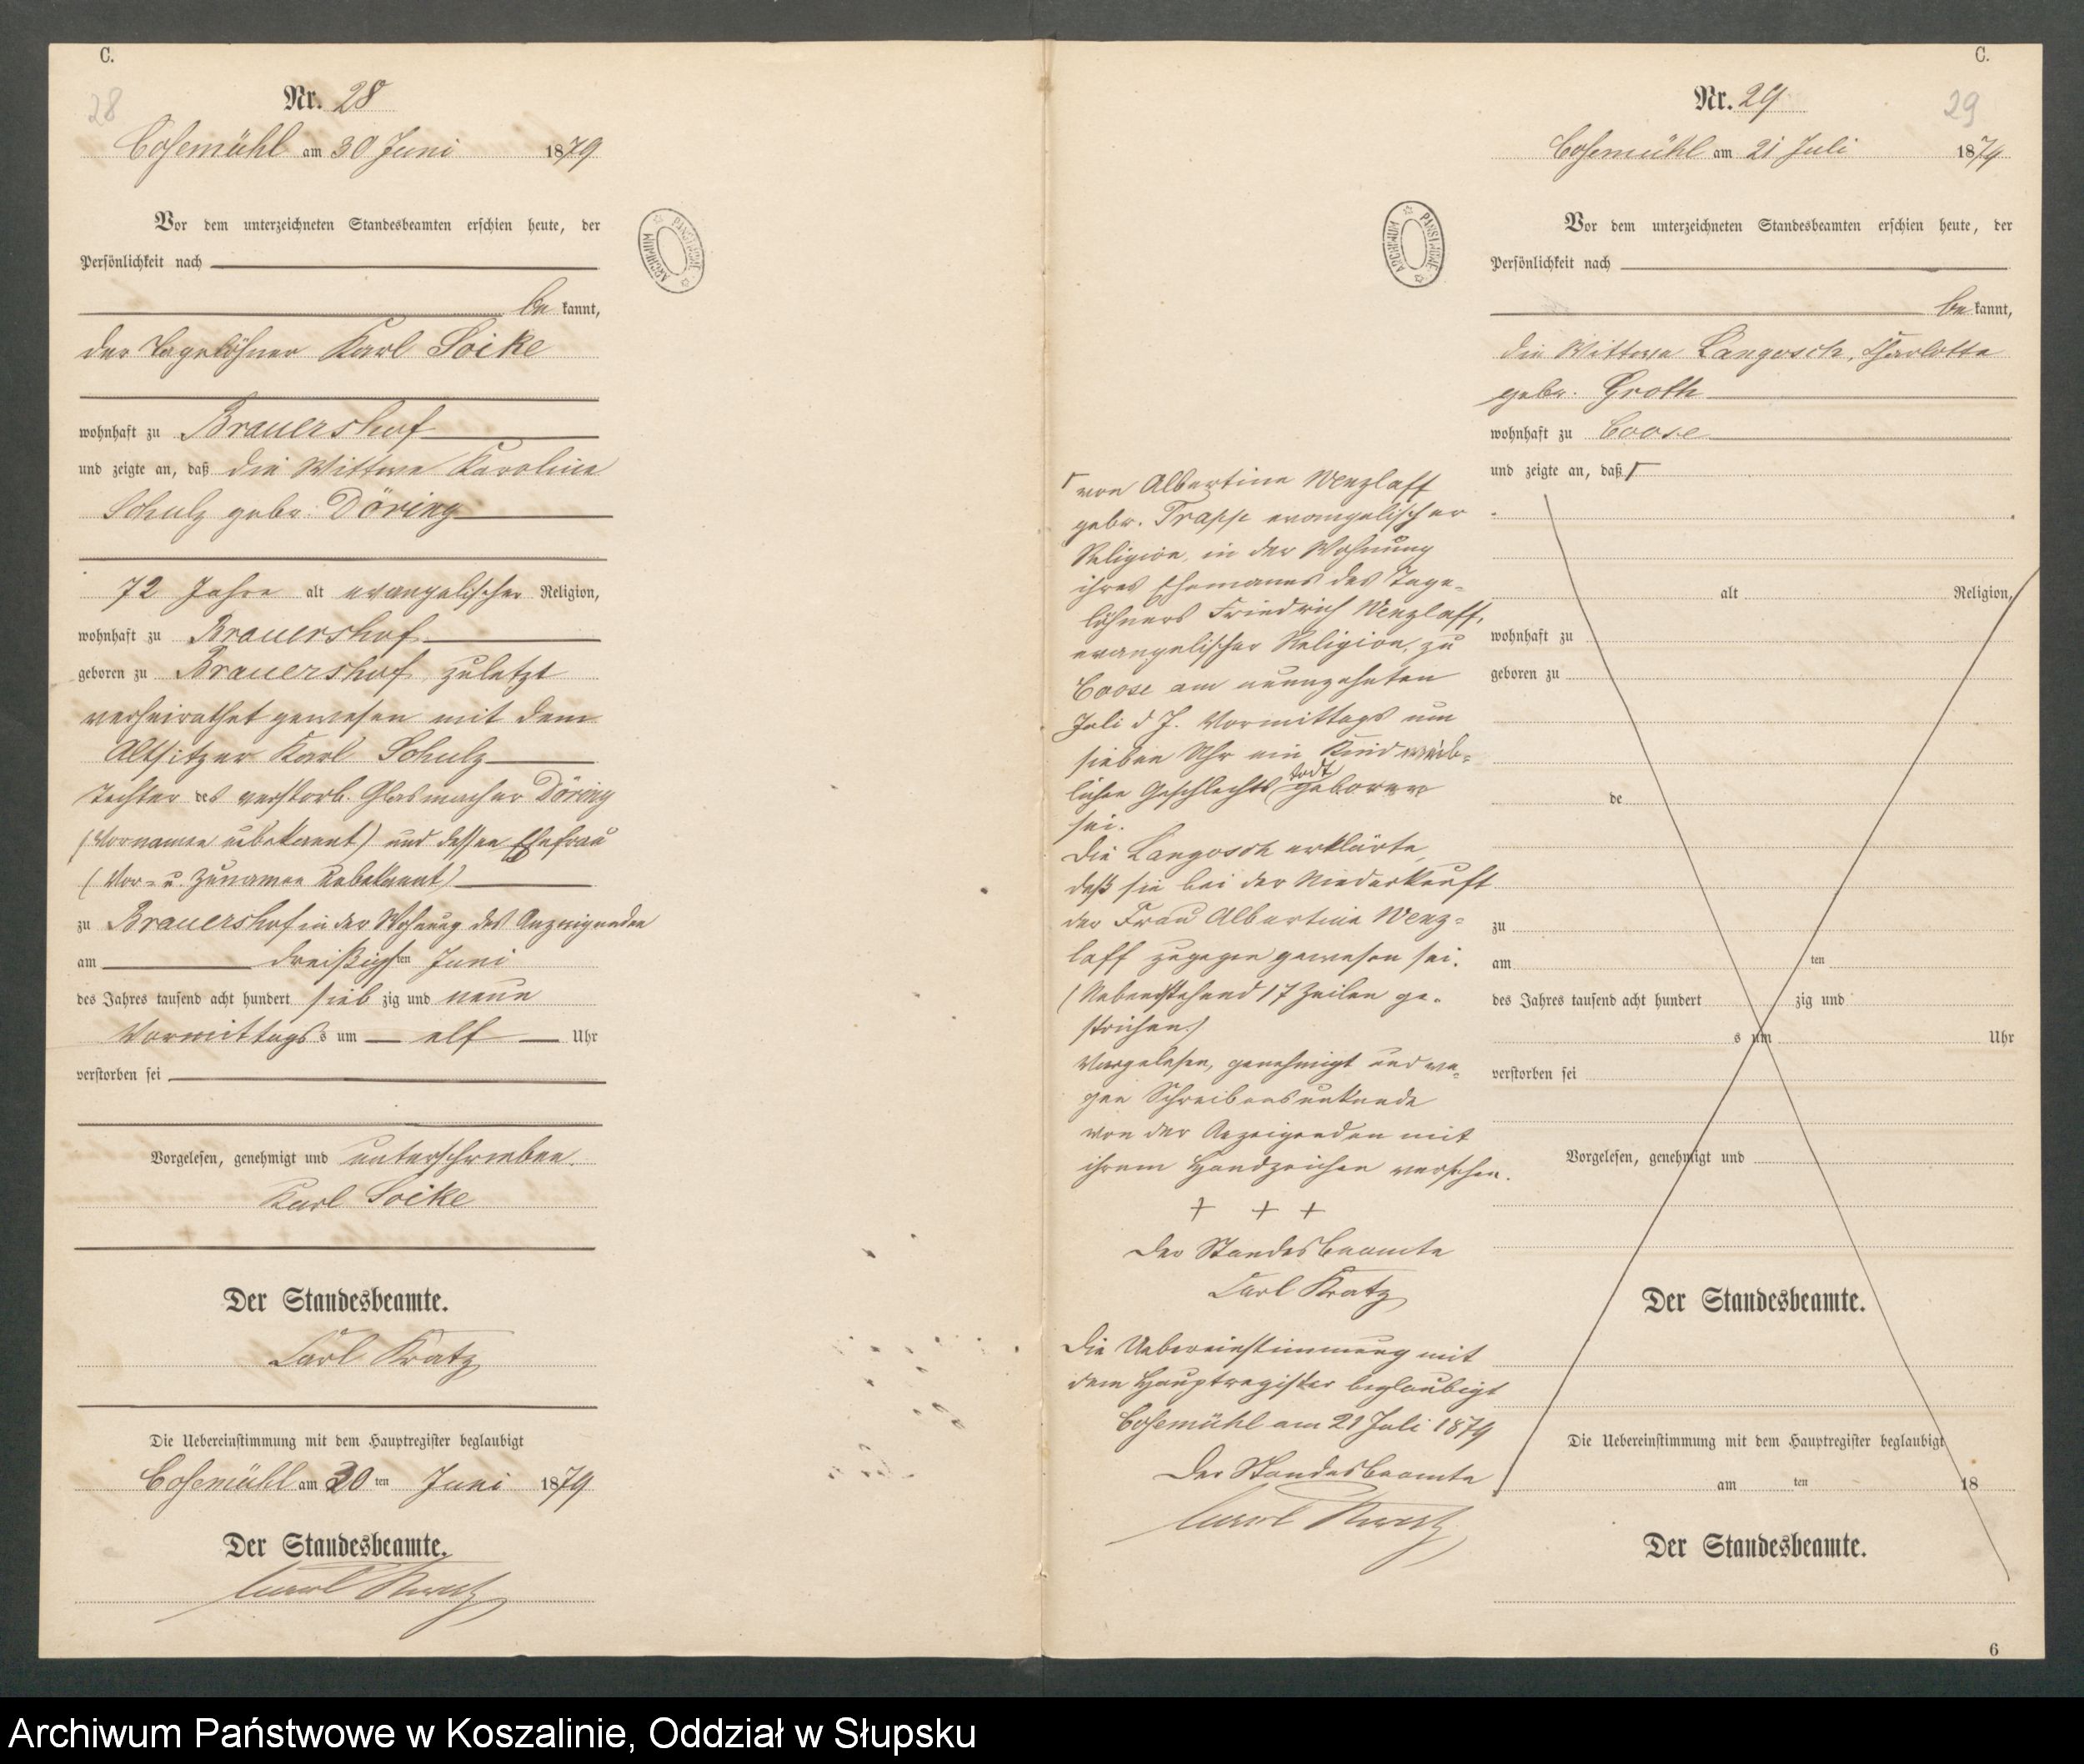 C.
28
Nr. 28
Cosemühl am 30 Juni 1879
Vor dem unterzeichneten Standesbeamten erschien heute, der
Persönlichkeit nach
be kannt,
der Tagelöhner Karl Soike
wohnhaft zu Brauershof
und zeigte an, daß die Wittwe Karoline
Schulz gebr. Döring
72 Jahre alt evangelischer Religion,
wohnhaft zu Brauershof
geboren zu Brauershof, zuletzt
verheirathet gewesen mit dem
Altsitzer Karl Schulz
Tochter des verstorb. Glasmacher Döring
(Vornamen unbekannt) und dessen Ehefrau
(Vor- u. Zunamen unbekannt)
zu Brauershof in der Wohnung des Anzeigenden
am dreißigsten Juni
des Jahres tausend acht hundert siebzig und neun
Vormittags s um elf Uhr
verstorben sei
Vorgelesen, genehmigt und unterschrieben.
Karl Soike
Der Standesbeamte.
Carl Kratz
Die Uebereinstimmung mit dem Hauptregister beglaubigt
Cosemühl am 30 ten Juni 1879
Der Standesbeamte.
Carl Kratz
ARCHIWUM PAŃSTWOWE
C.
Nr. 29
29
Cosemühl am 21 Juli 1879
ARCHIWUM PAŃSTWOWE
Vor dem unterzeichneten Standesbeamten erschien heute, der
Persönlichkeit nach
be kannt,
die Wittwe Langosch, Charlotte
gebr. Groth
wohnhaft zu Coose
und zeigte an, daß Γ
Γ von Albertine Wenzlaff
gebr. Trapp evangelischer
Religion, in der Wohnung
ihres Ehemannes des Tage-
löhners Friedrich Wenzlaff,
evangelischer Religion, zu
Coose am neunzehnten
Juli d J. Vormittags um
sieben Uhr ein Kind weib-
lichen Geschlechts todt geboren
sei.
Die Langosch erklärte,
daß sie bei der Niederkunft
der Frau Albertine Wenz-
laff zugegen gewesen sei.
(Nebenstehend 17 Zeilen ge-
strichen.)
Vorgelesen, genehmigt und we-
gen Schreibensunkunde
von der Anzeigenden mit
ihrem Handzeichen versehen.
+ + +
Der Standesbeamte
Carl Kratz
Die Uebereinstimmung mit
dem Hauptregister beglaubigt
Cosemühl am 21 Juli 1879
Der Standesbeamte
Carl Kratz
alt Religion,
wohnhaft zu
geboren zu
de
zu
am ten
des Jahres tausend acht hundert zig und
s um Uhr
verstorben sei
Vorgelesen, genehmigt und
Der Standesbeamte.
Die Uebereinstimmung mit dem Hauptregister beglaubigt
am ten 18
Der Standesbeamte.
6
Archiwum Państwowe w Koszalinie, Oddział w Słupsku